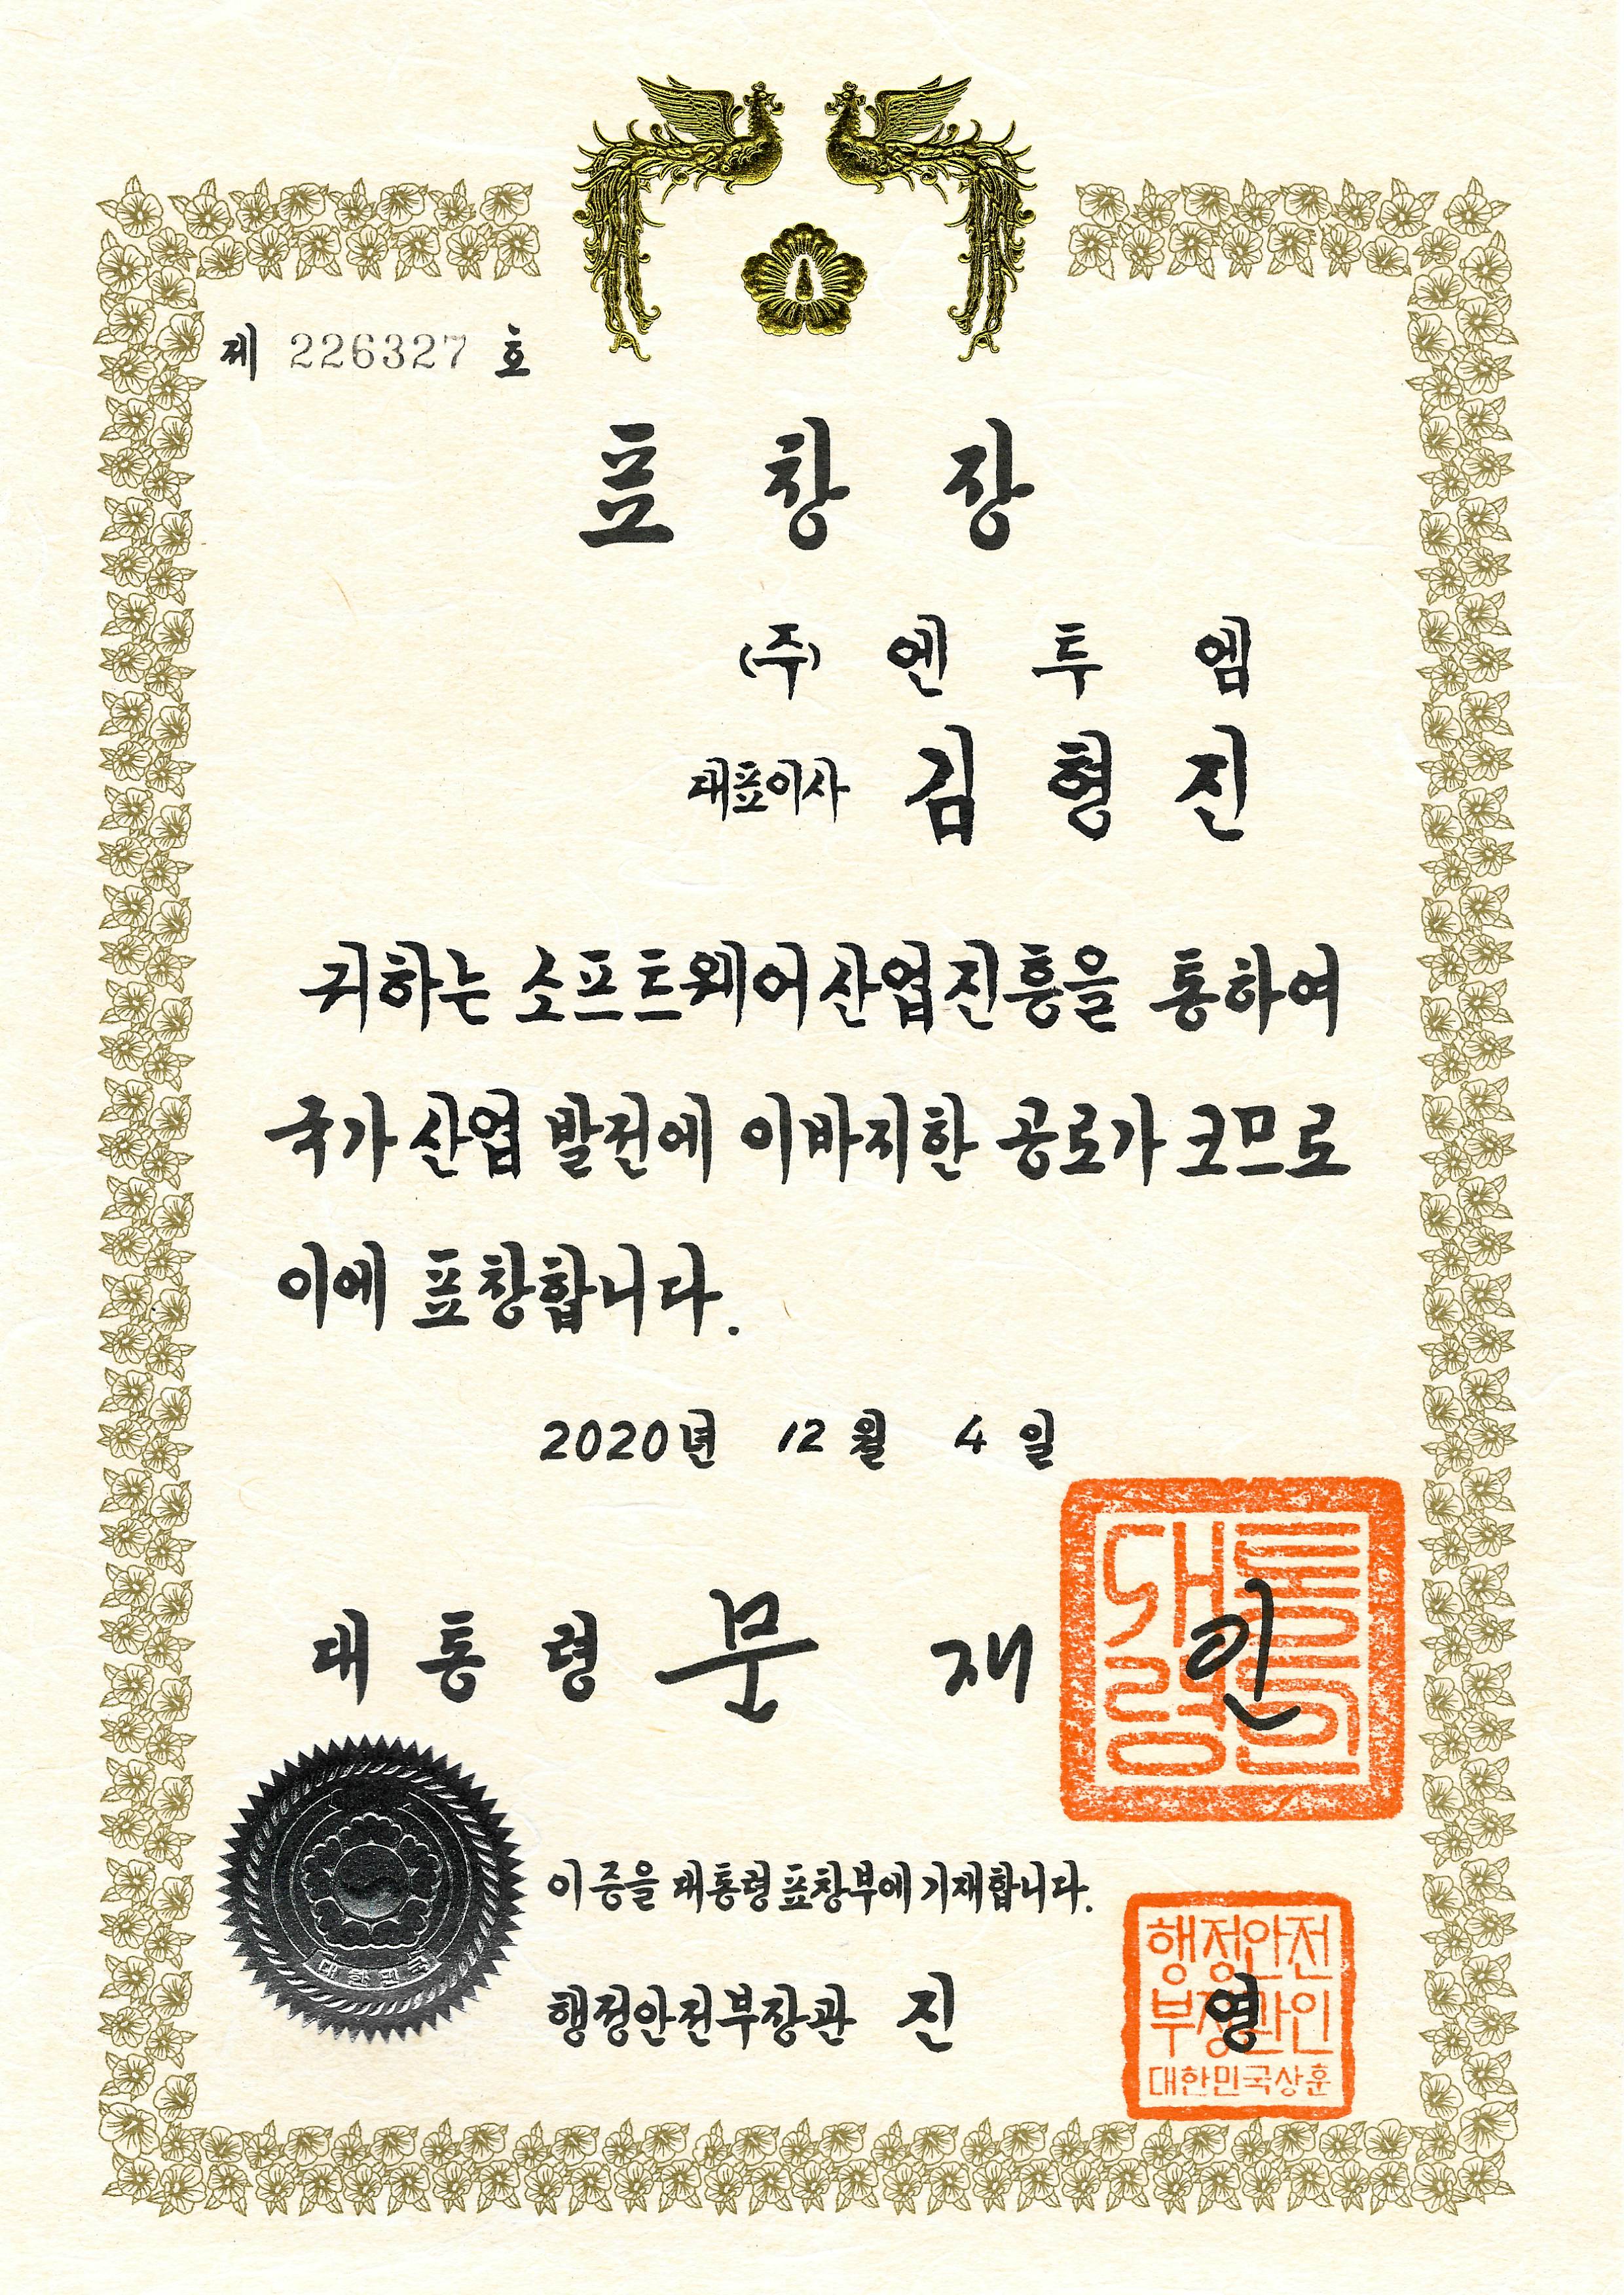 제 226327 호
표 창 장
(주) 엔 투 엠
대표이사 김 형 진
귀하는 소프트웨어산업진흥을 통하여
국가 산업 발전에 이바지한 공로가 크므로
이에 표창합니다.
2020년 12월 4일
대 통 령 문 재 인
대통령의인
이 증을 대통령표창부에 기재합니다.
행정안전부장관 진 영
행정안전
부장관인
대한민국상훈
대한민국